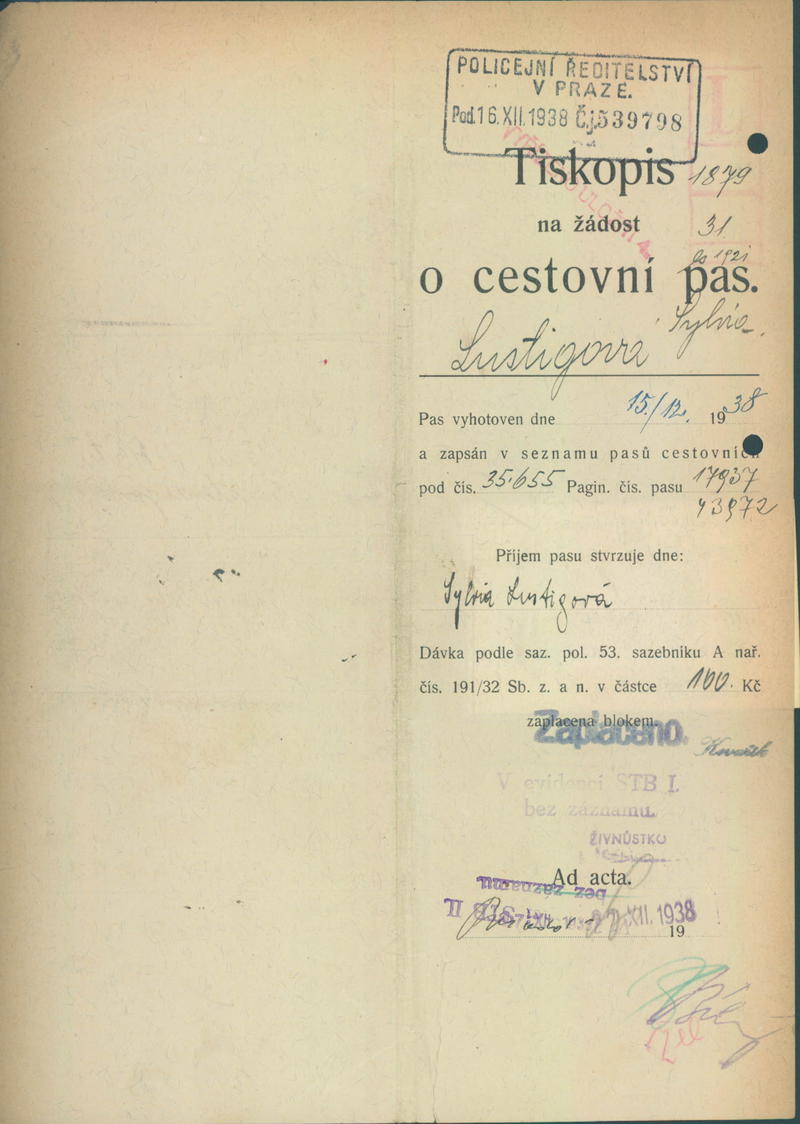 POLICEJNÍ ŘEDITELSTVÍ
V PRAZE.
Pod. 16. XII. 1938 Č.j. 539798
Tiskopis 1879
na žádost 31
1921
o cestovní pas.
Lustigova Sylvia
Pas vyhotoven dne 15./12. 1938
a zapsán v seznamu pasů cestovních
pod čís. 35.655 Pagin. čís. pasu 17937
43972
Příjem pasu stvrzuje dne:
Sylvia Lustigová
Dávka podle saz. pol. 53. sazebníku A nař.
čís. 191/32 Sb. z. a n. v částce 100. Kč
zaplacena blokem.
Zaplaceno.
V evidenci STB I.
bez záznamu.
ŽIVNŮSTKO
Ad acta.
bez záznamu
STB II.
XII. 1938
19